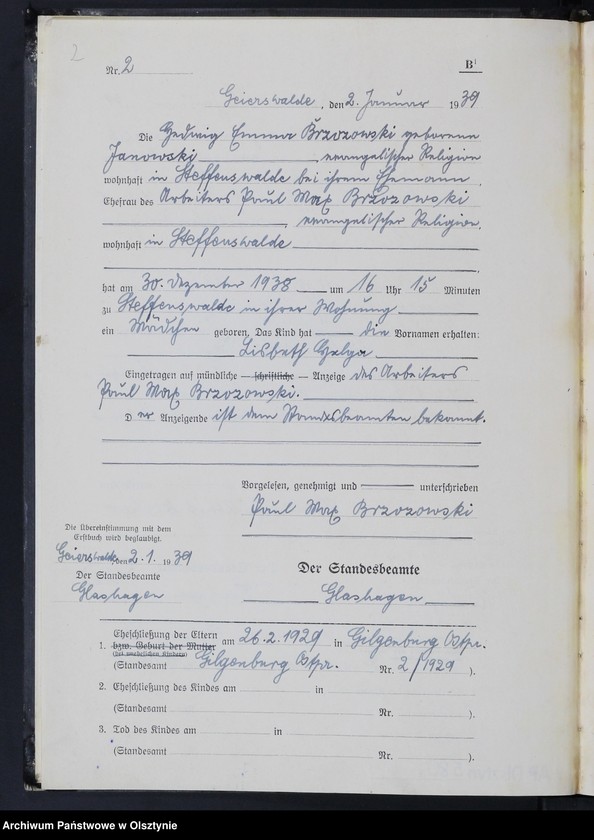 2
Nr. 2
B¹
Geierswalde, den 2. Januar 1939
Die Hedwig Emma Brzozowski geborene
Janowski, evangelischer Religion
wohnhaft in Steffenswalde bei ihrem Ehemann,
Ehefrau des Arbeiters Paul Max Brzozowski
, evangelischer Religion,
wohnhaft in Steffenswalde
,
hat am 30. Dezember 1938 um 16 Uhr 15 Minuten
zu Steffenswalde in ihrer Wohnung
ein Mädchen geboren. Das Kind hat — die Vornamen erhalten:
Lisbeth Helga
Eingetragen auf mündliche — schriftliche — Anzeige des Arbeiters
Paul Max Brzozowski.
Der Anzeigende ist dem Standesbeamten bekannt.
Vorgelesen, genehmigt und — unterschrieben
Paul Max Brzozowski
Die Übereinstimmung mit dem
Erstbuch wird beglaubigt.
Geierswalde, den 2.1. 1939
Der Standesbeamte
Glashagen
Der Standesbeamte
Glashagen
Eheschließung der Eltern
1. bzw. Geburt der Mutter am 26.2.1929 in Gilgenburg Ostpr.
(bei unehelichen Kindern)
(Standesamt Gilgenburg Ostpr. Nr. 2/1929 ).
2. Eheschließung des Kindes am in
(Standesamt Nr. ).
3. Tod des Kindes am in
(Standesamt Nr. ).
Archiwum Państwowe w Olsztynie